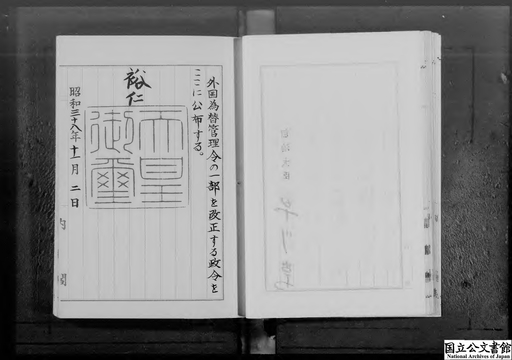 外国為替管理令の一部を改正する政令を
ここに公布する。
裕仁
天皇
御璽
昭和三十八年十一月二日
内閣
国立公文書館
National Archives of Japan